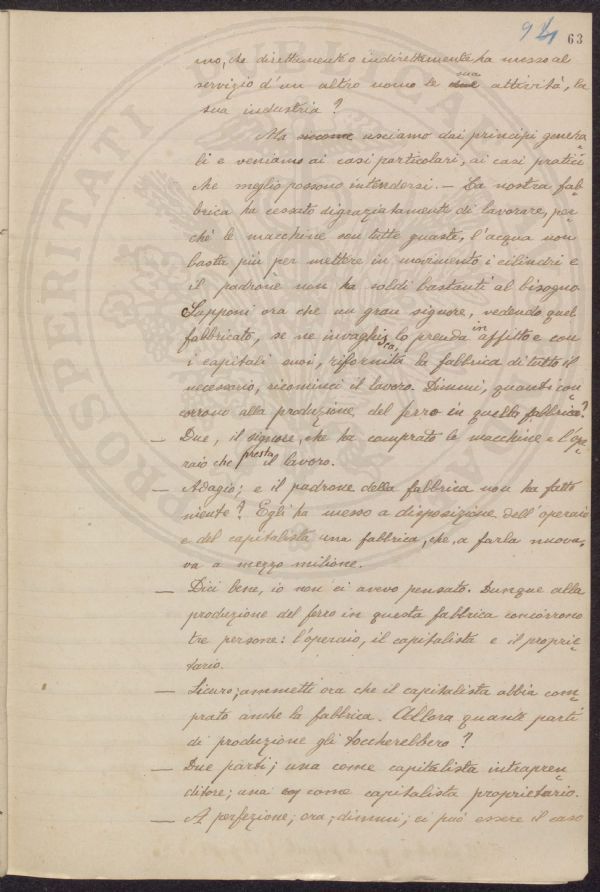 94 63
mo, che direttamente o indirettamente ha messo al
servizio d'un altro uomo le sua attività, la
sua industria?
Ma siccome usciamo dai principi genera-
li e veniamo ai casi particolari, ai casi pratici
che meglio possono intendersi. – La nostra fab-
brica ha cessato disgraziatamente di lavorare, per-
chè le macchine son tutte guaste, l'acqua non
basta più per mettere in movimento i cilindri e
il padrone non ha soldi bastanti al bisogno.
Supponi ora che un gran signore, vedendo quel
fabbricato, se ne invaghisca, lo prenda in affitto e con
i capitali suoi, rifornita la fabbrica di tutto il
necessario, ricominci il lavoro. Dimmi, quanti con-
corrono alla produzione del ferro in questa fabbrica?
— Due, il signore, che ha comprato le macchine e l'ope-
raio che presta il lavoro.
— Adagio; e il padrone della fabbrica non ha fatto
niente? Egli ha messo a disposizione dell'operaio
e del capitalista una fabbrica, che, a farla nuova,
va a mezzo milione.
— Dici bene, io non ci avevo pensato. Dunque alla
produzione del ferro in questa fabbrica concorrono
tre persone: l'operaio, il capitalista e il proprie-
tario.
— Sicuro; ammetti ora che il capitalista abbia com-
prato anche la fabbrica. Allora quante parti
di produzione gli toccherebbero?
— Due parti; una come capitalista intrapren-
ditore; una come capitalista proprietario.
— A perfezione; ora, dimmi, ci può essere il caso
PROSPERITATI PUBLICAE